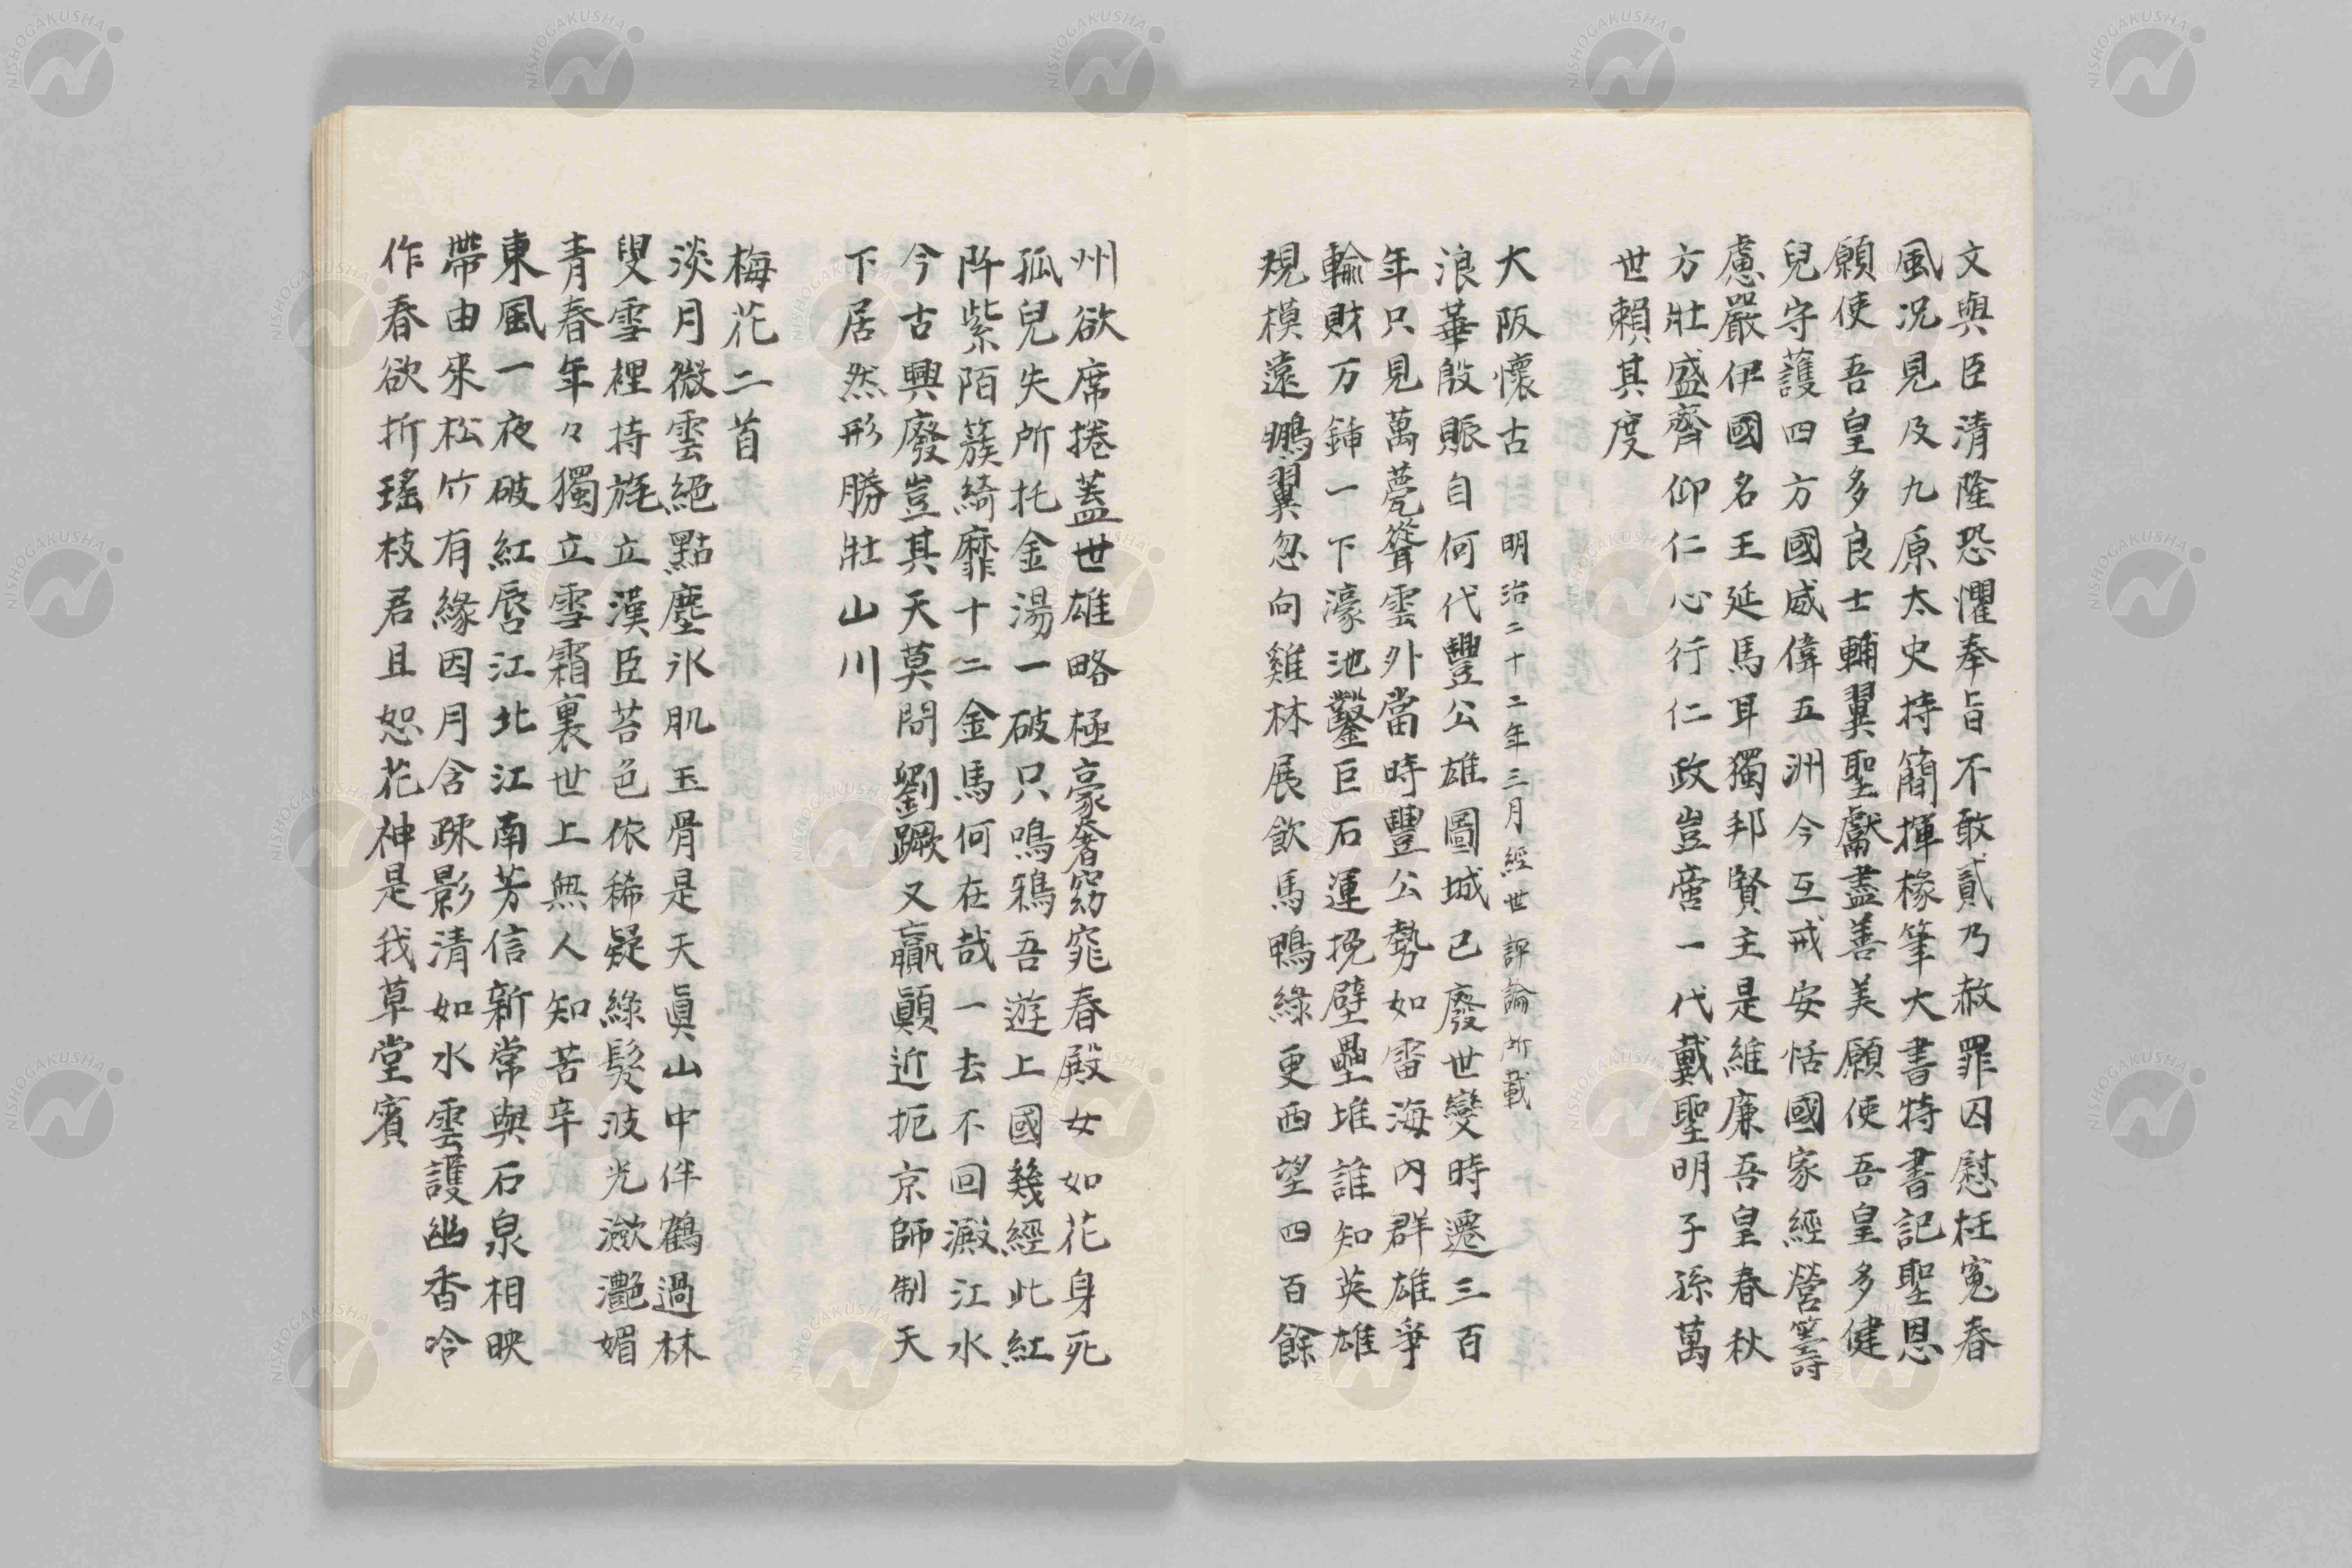 文與臣清隆恐懼奉旨不敢貳乃赦罪囚慰枉冤春
風況見及九原太史持簡揮椽筆大書特書記聖恩
願使吾皇多良士輔翼聖獻盡善美願使吾皇多健
兒守護四方國威偉五洲今互戒安恬國家經營籌
慮嚴伊國名王延馬耳獨邦賢主是維廉吾皇春秋
方壯盛齊仰仁心行仁政豈啻一代戴聖明子孫萬
世賴其度
大阪懷古 明治二十二年三月經世評論所載
浪華殷賑自何代豐公雄圖城已廢世變時遷三百
年只見萬甍聳雲外當時豐公勢如雷海內群雄爭
輸財万鍾一下濠池鑿巨石運挽壁壘堆誰知英雄
規模遠鵬翼忽向雞林展飲馬鴨綠更西望四百餘
州欲席捲蓋世雄略極豪奢窈窕春殿女如花身死
孤兒失所托金湯一破只鳴鴉吾遊上國幾經此紅
阡紫陌簇綺靡十二金馬何在哉一去不回澱江水
今古興廢豈其天莫問劉蹶又贏顚近扼京師制天
下居然形勝壯山川
梅花二首
淡月微雲絕點塵氷肌玉骨是天眞山中伴鶴過林
叟雪裡持旄立漢臣苔色依稀疑綠髮波光瀲灔媚
青春年々獨立雪霜裏世上無人知苦辛
東風一夜破紅唇江北江南芳信新常與石泉相映
帶由來松竹有緣因月含疎影清如水雲護幽香呤
作春欲折瑤枝君且恕花神是我草堂賓